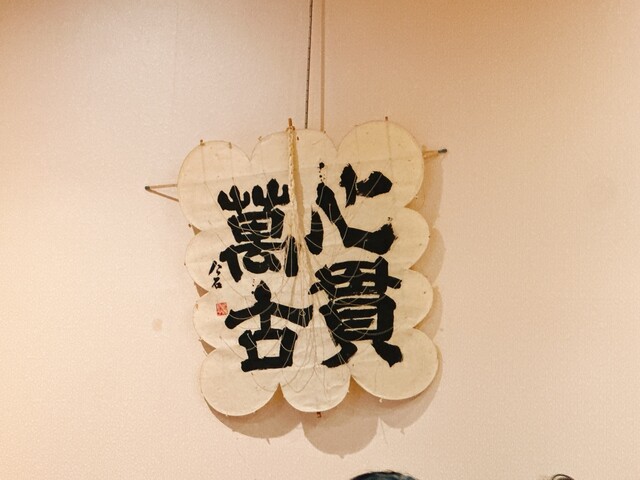 心貫
萬古